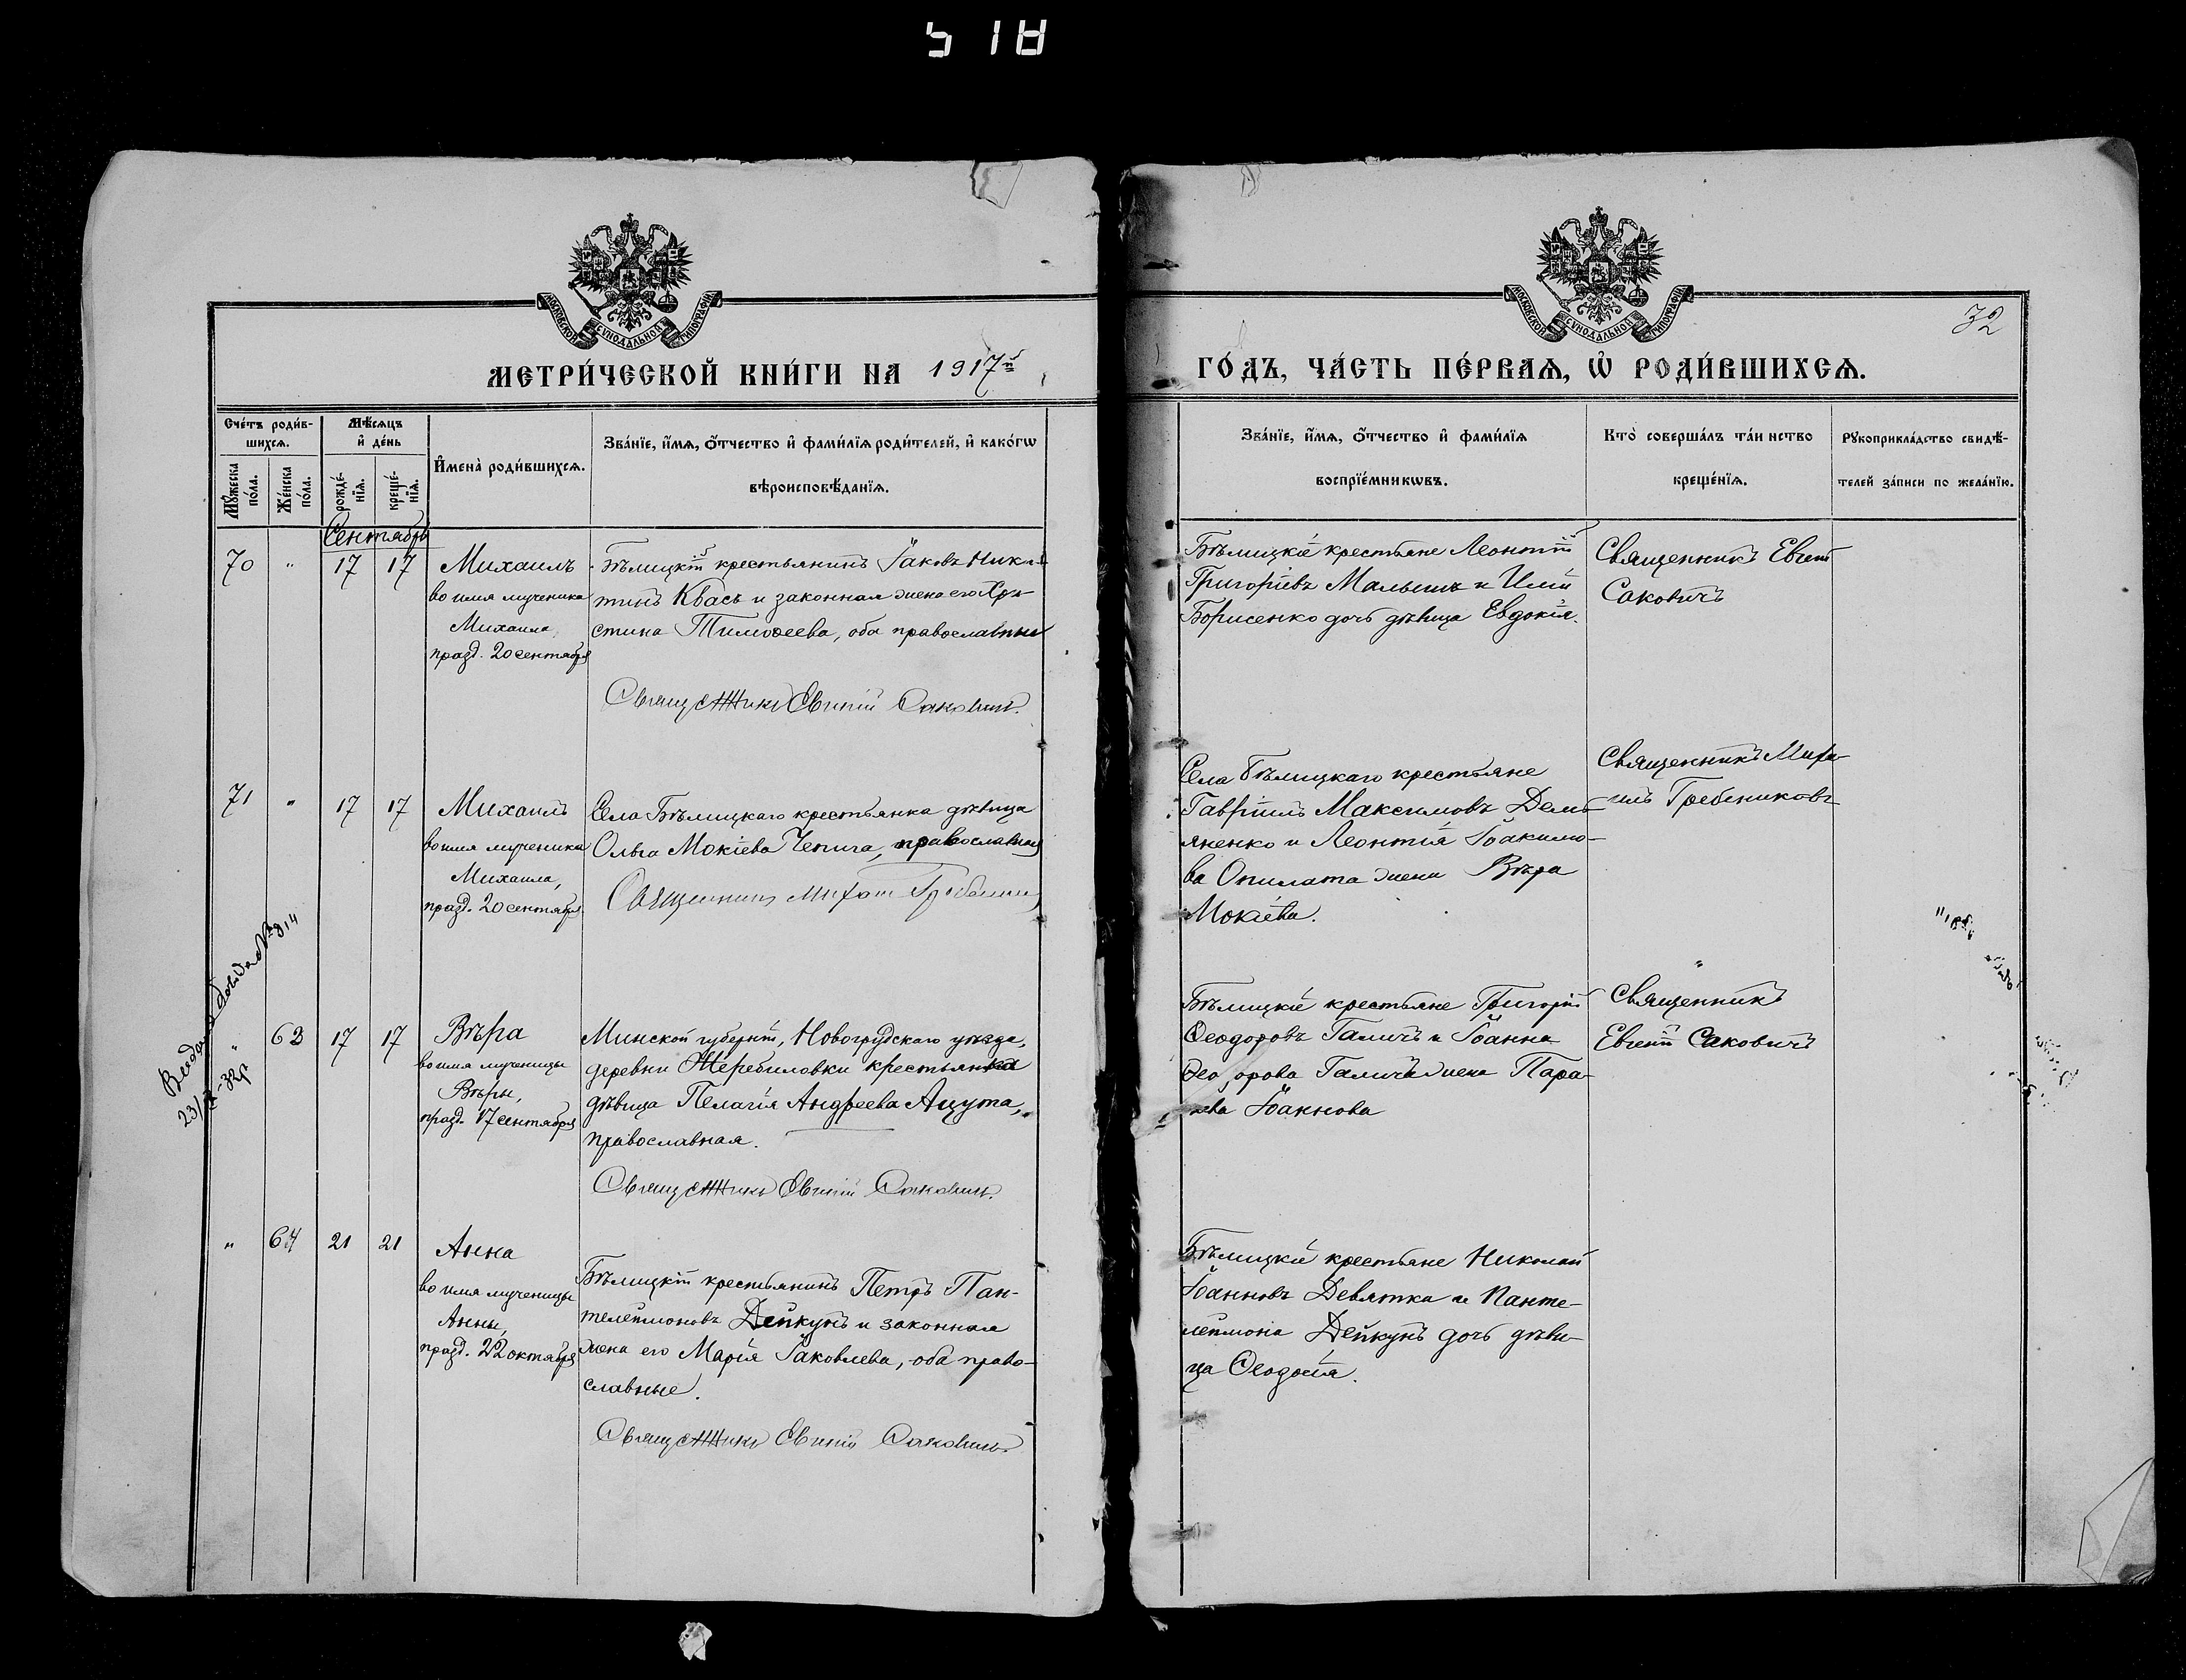 МОСКОВСКОЙ СУНОДАЛЬНОЙ ТИПОГРАФІИ
МОСКОВСКОЙ СУНОДАЛЬНОЙ ТИПОГРАФІИ
32
МЕТРИ́ЧЕСКОЙ КНИ́ГИ НА 1917й
ГО́ДЪ, ЧА́СТЬ ПЕ́РВАѦ, Ѡ҆ РОДИ́ВШИХСѦ.
Сче́тъ роди́в-
шихсѧ.
Мꙋ́жеска по́ла.
Же́нска по́ла.
Мѣ́сѧцъ
и҆ де́нь
рожде́-
нїѧ.
креще́-
нїѧ.
И҆мена̀ роди́вшихсѧ.
Зва́нїе, и҆́мѧ, ѻ҆́тчество и҆ фами́лїѧ роди́телей, и҆ како́гѡ
вѣроисповѣ́данїѧ.
Зва́нїе, и҆́мѧ, ѻ҆́тчество и҆ фами́лїѧ
воспрїе́мникѡвъ.
Кто̀ соверша́лъ та́инство
креще́нїѧ.
Рꙋкоприкла́дство свидѣ́-
телей за́писи по жела́нїю.
Сентябрь
70 " 17 17
Михаилъ
во имя мученика
Михаила,
празд. 20 сентября
Бѣлицкій крестьянинъ Іаковъ Ники-
тинъ Квасъ и законная жена его Хри-
стина Тимоѳеева, оба православные
Священникъ Евгеній Саковичъ.
Бѣлицкіе крестьяне Леонтій
Григоріевъ Малышъ и Иліи
Борисенко дочь дѣвица Евдокія.
Священникъ Евгеній
Саковичъ
71 " 17 17
Михаилъ
во имя мученика
Михаила,
празд. 20 сентября
Села Бѣлицкаго крестьянка дѣвица
Ольга Мокіева Чепига, православная
Священникъ Михаилъ Гребенниковъ
Села Бѣлицкаго крестьяне
Гавріилъ Максимовъ Демь-
яненко и Леонтія Іоакимо-
ва Опилата жена Вѣра
Мокіева.
Священникъ Миха-
илъ Гребениковъ
" 63 17 17
Вѣра
во имя мученицы
Вѣры,
празд. 17 сентября
Минской губерніи, Новогрудскаго уѣзда,
деревни Жеребиловки крестьянка
дѣвица Пелагія Андреева Ацута,
православная.
Священникъ Евгеній Саковичъ.
Бѣлицкіе крестьяне Григорій
Ѳеодоровъ Галичъ и Іоанна
Ѳеодорова Галича жена Пара-
ева Іоаннова
Священникъ
Евгеній Саковичъ
" 64 21 21
Анна
во имя мученицы
Анны,
празд. 22 октября
Бѣлицкій крестьянинъ Петръ Пан-
телеимоновъ Дейкунъ и законная
жена его Марія Іаковлева, оба право-
славные.
Священникъ Евгеній Саковичъ
Бѣлицкіе крестьяне Николай
Іоанновъ Девятка и Панте-
леимона Дейкунъ дочь дѣви-
ца Ѳеодосія.